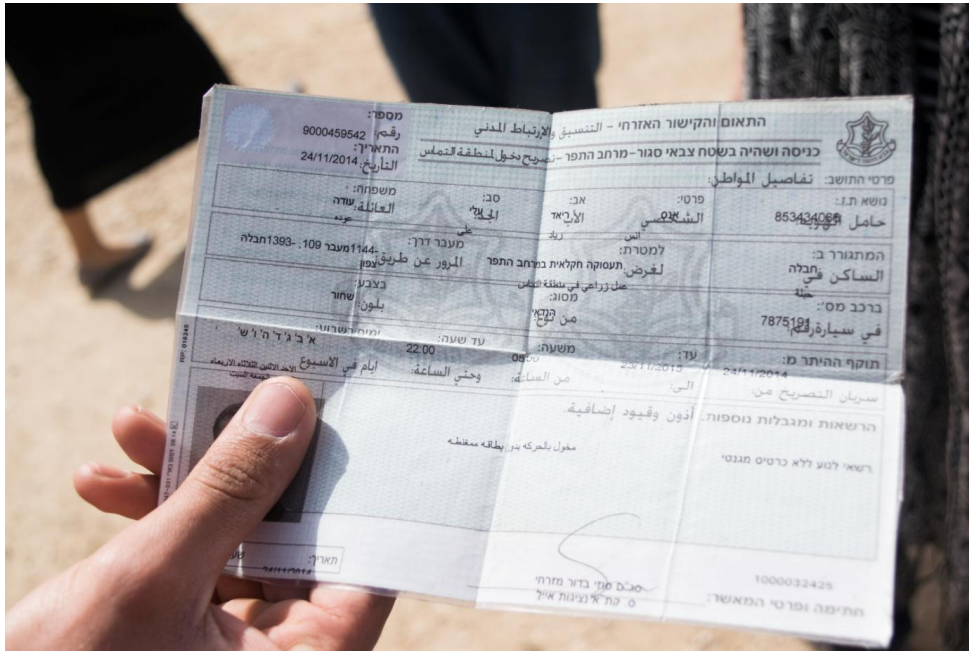 התאום והקישור האזרחי - التنسيق والإرتباط المدني
כניסה ושהיה בשטח צבאי סגור-מרחב התפר-تصريح دخول لمنطقة التماس
מספר:
رقم: 9000459542
התאריך:
التأريخ: 24/11/2014
פרטי התושב: تفاصيل المواطن:
נושא ת.ז.:
حامل الهوية: 853434066
פרטי:
الشخصي אנס
انس
אב:
الأب ריאד
رياد
סב:
الجد עלי
علي
משפחה:
العائلة: עודה
عوده
המתגורר ב:
الساكن في: חבלה
حبلة
למטרת:
لغرض: תעסוקה חקלאית במרחב התפר
عمل زراعي في منطقة التماس
מעבר דרך:
المرور عن طريق: 1144-מעבר 109. ,1393-חבלה
צפון
ברכב מס':
في سيارة رقم: 7875191
מסוג:
من نوع: יונדאי
בצבע:
بلون: שחור
תוקף ההיתר מ:
سريان التصريح من: 24/11/2014
עד:
الى: 23/11/2015
משעה:
من الساعة: 05:00
עד שעה:
وحتي الساعة: 22:00
ימים בשבוע: א' ב' ג' ד' ה' ו' ש'
ايام في الاسبوع الاحد الاثنين الثلاثاء الاربعاء
הרשאות ומגבלות נוספות. أذون وقيود إضافية.
רשאי לנוע ללא כרטיס מגנטי.
مخول بالحركه بدون بطاقه ممغنطه
תאריך:
1000032425
חתימה ופרטי המאשר:
סג"ם סוזי בדור מזרחי